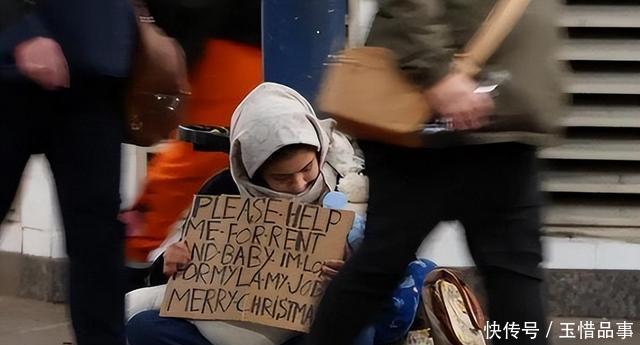 PLEASE·HELP
ME·FOR·RENT
AND·BABY·IM·LO
FOR MY LA·MY·JOB
MERRY·CHRISTMA
快传号/玉惜品事